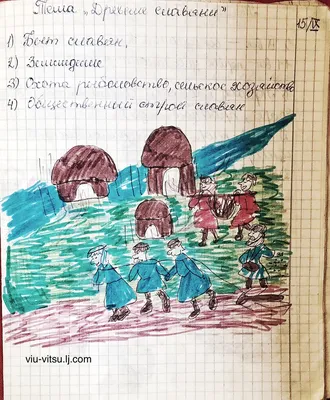 Тема „Древние славяни"
15/IX
1) Быт славян.
2) Земледелие
3) Охота рыболовство, сельское хозяйство
4) Общественный строй славян
viu-vitsu.lj.com